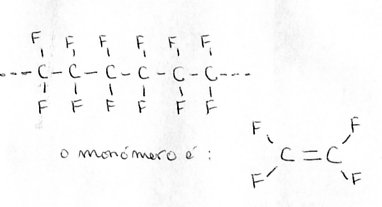 F F F F F F
---C-C-C-C-C-C---
F F F F F F
o monómero é:
F F
C=C
F F